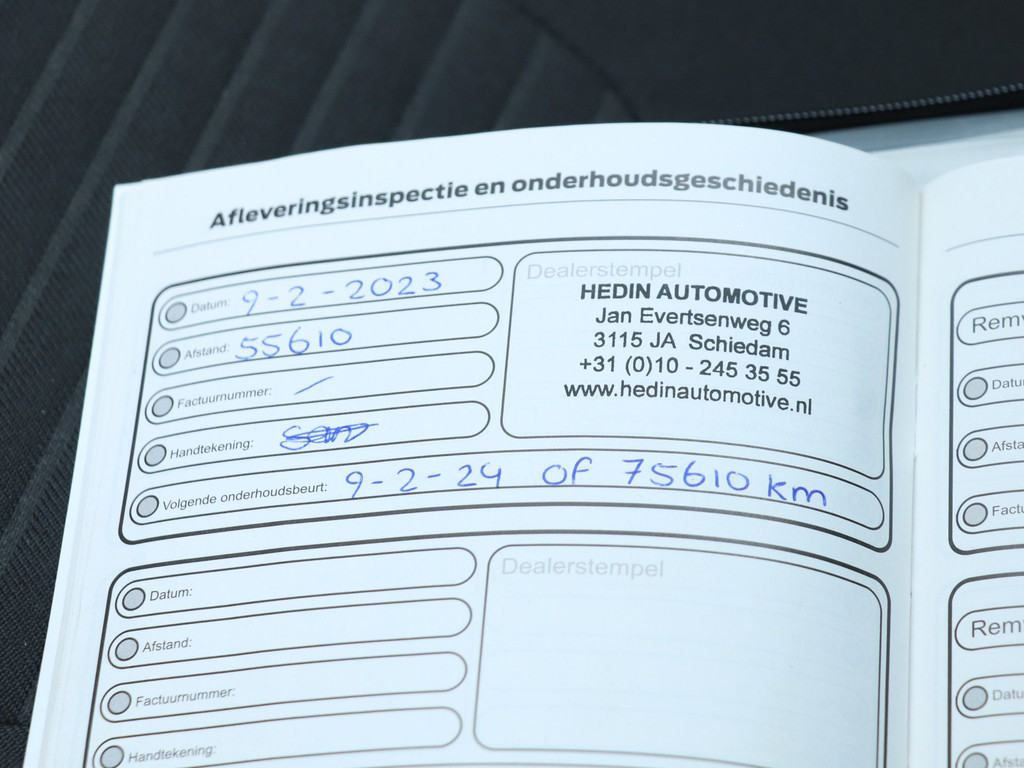 Afleveringsinspectie en onderhoudsgeschiedenis
Datum: 9-2-2023
Afstand: 55610
Factuurnummer: /
Handtekening:
Volgende onderhoudsbeurt: 9-2-24 of 75610 km
Dealerstempel
HEDIN AUTOMOTIVE
Jan Evertsenweg 6
3115 JA Schiedam
+31 (0)10 - 245 35 55
www.hedinautomotive.nl
Datum:
Afstand:
Factuurnummer:
Handtekening:
Dealerstempel